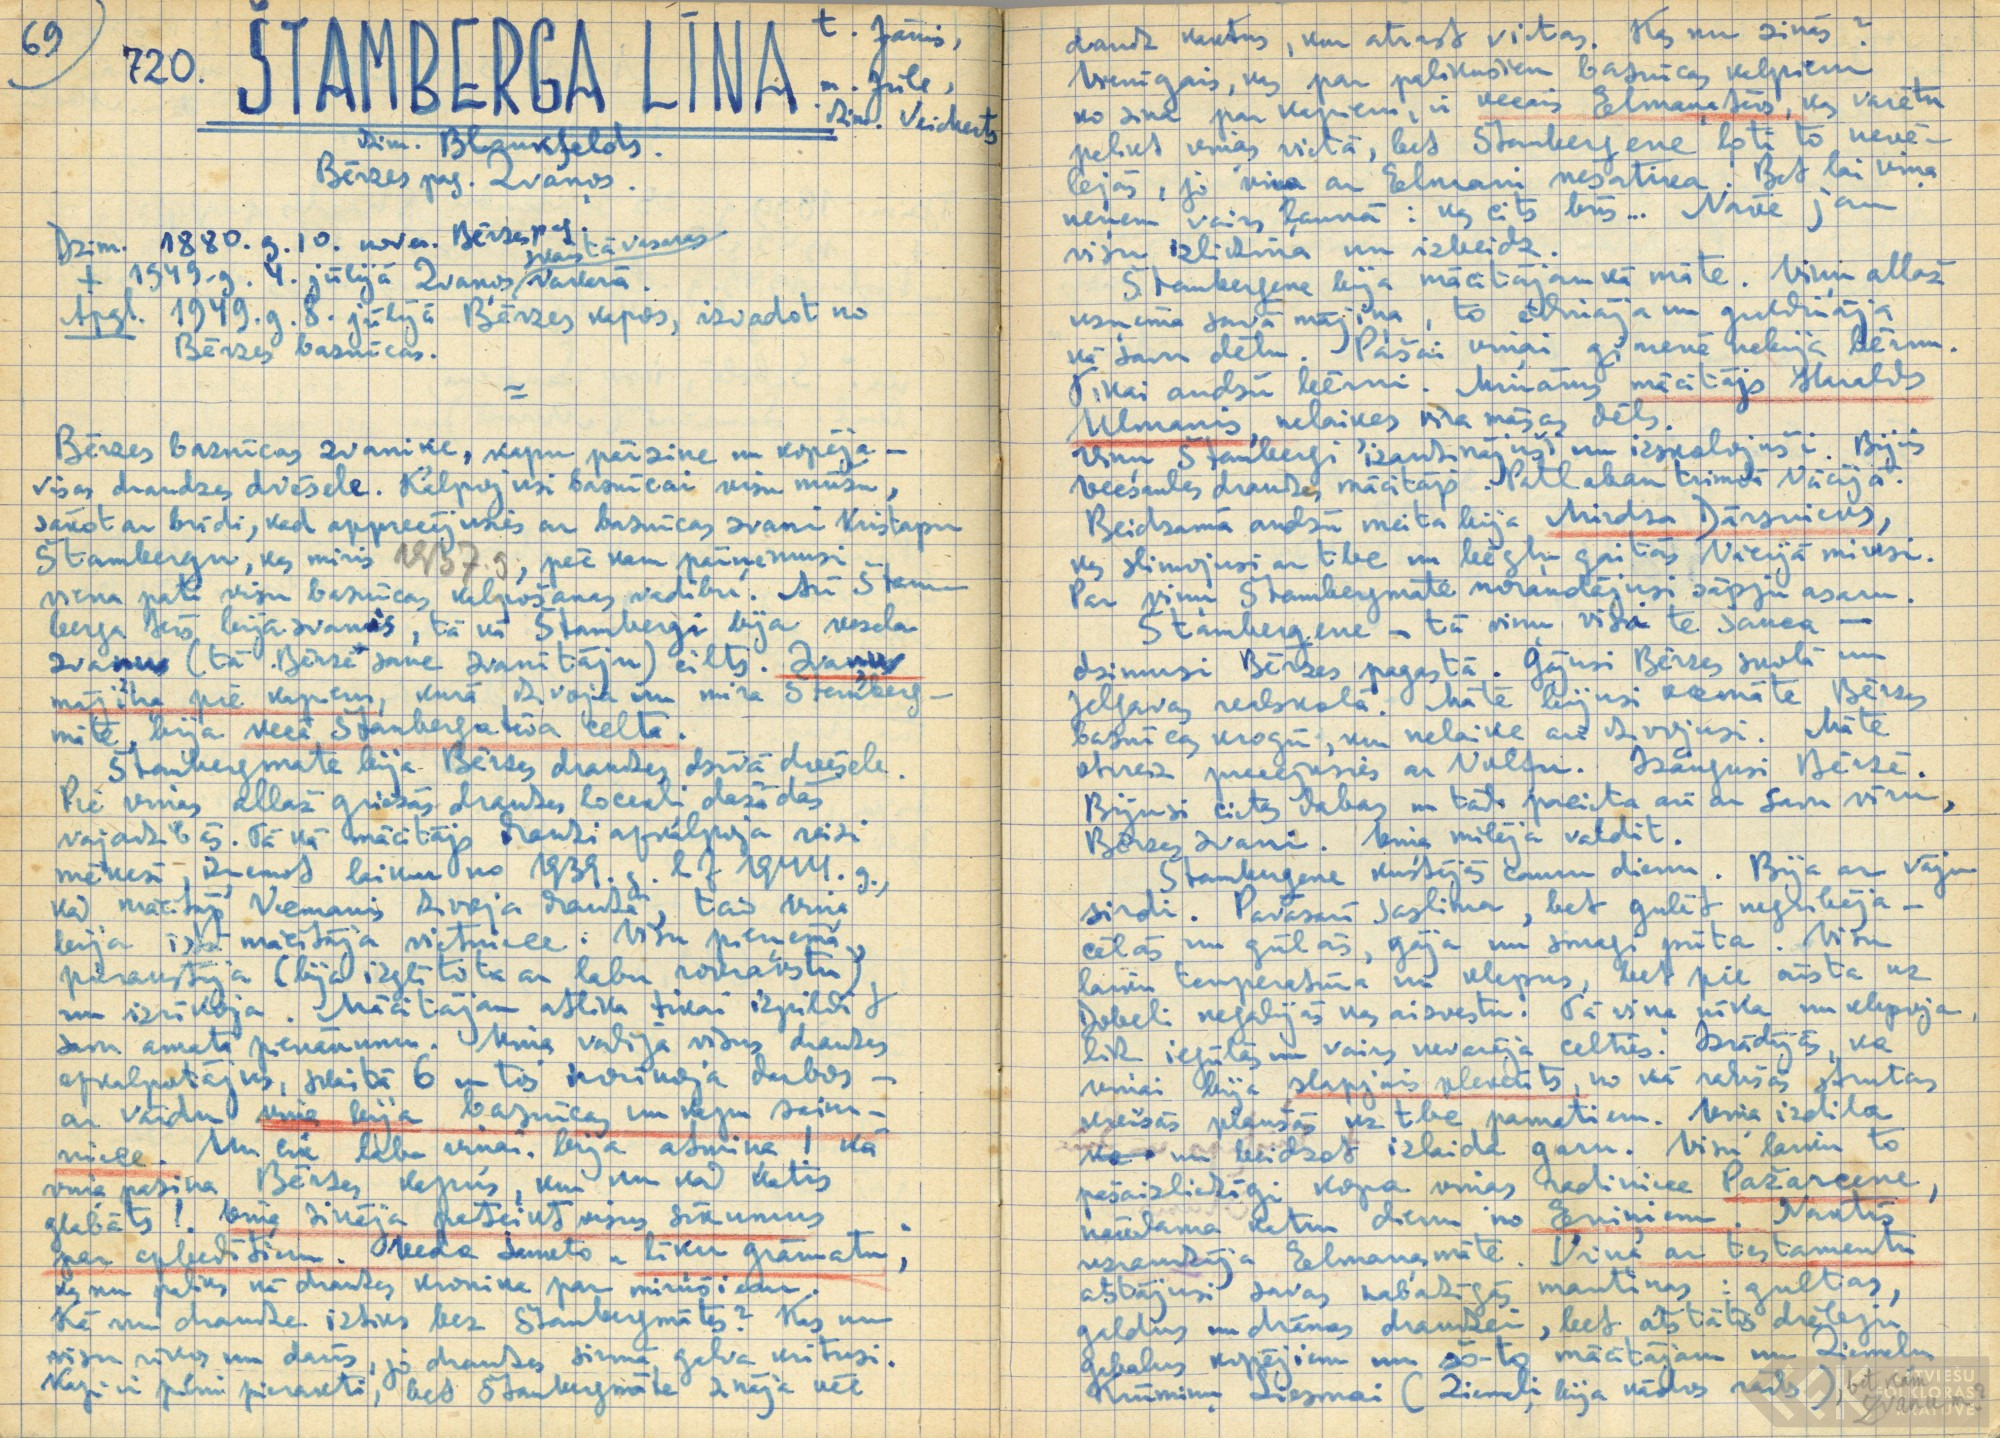 69
720. ŠTAMBERGA LĪNA
t. Jānis,
m. Jūle,
dzim. Veicherts
dzim. Blankfelds.
Bērzes pag. Zvaņos.
Dzim. 1880. g. 10. novem. Bērzes pag.
skaistā vasaras
+ 1949. g. 4. jūlijā Zvaņos vakarā.
Apgl. 1949. g. 8. jūlijā Bērzes kapos, izvadot no
Bērzes baznīcas.
=
Bērzes baznīcas zvaniķe, kapu pārzine un kopēja –
visas draudzes dvēsele. Kalpojusi baznīcai visu mūžu,
sākot ar brīdi, kad apprecējusies ar baznīcas zvani Kristapu
Štambergu, kas miris 1937. g., pēc kam pārņēmusi
viena pati visu baznīcas kalpošanas vadību. Arī Štam-
berga tēvs bija zvanis, tā kā Štambergi bija vesela
zvanu (tā Bērzē sauc zvanītāju) cilts. Zvanu
mājiņa pie kapiem, kurā dzīvoja un mira Štamberg-
māte, bija vecā Štamberga tēva celta.
Štambergmāte bija Bērzes draudzes dzīvā dvēsele.
Pie viņas allaž griezās draudzes locekļi dažādās
vajadzībās. Tā kā mācītājs draudzi apkalpoja reizi
mēnesī, izņemot laiku no 1939. g. līdz 1944. g.,
kad mācītājs Veemanis dzīvoja draudzē, tad viņa
bija īstā mācītāja vietniece. Visu pieņēma,
pierakstīja (bija izglītota ar labu rokrakstu)
un izrīkoja. Mācītājam atlika tikai izpildīt
savu amata pienākumu. Viņa vadīja visus draudzes
apkalpotājus, skaitā 6 un tos norīkoja darbos –
ar vārdu viņa bija baznīcas un kapu saim-
niece. Un cik laba viņai bija atmiņa! Kā
viņa pazina Bērzes kapus, kur un kad katis
glabāts! Viņa zināja pateikt visus sīkumus
par apbedītiem. Veda tamēto „līķu grāmatu,
kas nu paliks kā draudzes kronika par mirušiem.
Kā nu draudze iztiks bez Štambergmātes? Kas nu
visu rīkos un darīs, jo draudzes sirmā galva kritusi.
Kapi ir pilni pierakti, bet Štambergmāte zināja vēl
daudz kaktus, kur atrast vietas. Kas nu zinās?
Vienīgais, kas par palikušiem baznīcas kalpiem
ko zina par kapiem, ir vecais Elmaņa tēvs, kas varētu
palikt viņas vietā, bet Štambergene ļoti to nevē-
lējās, jo viņa ar Elmani nesatika. Bet lai viņa
neņem vairs ļaunā: kas cits būs... Nāve jau
visu izlīdzina un izbeidz.
Štambergene bija mācītājam kā māte. Viņu allaž
uzņēma savā mājiņā, to ēdināja un guldināja
kā savu dēlu. Pašai viņai ģimenē nebija bērnu.
Tikai audžu bērni. Minams mācītājs Haralds
Ulmanis, nelaiķes vīra māsas dēls.
Viņu Štambergi izaudzinājuši un izskolojuši. Bijis
Vecsaules draudzes mācītājs. Patlaban trimdā Vācijā.
Beidzamā audžu meita bija Mirdza Dārznieks,
kas slimojusi ar tbc un bēgļu gaitās Vācijā mirusi.
Par viņu Štambergmāte noraudājusi sāpju asaru.
Štambergene – tā viņu visi te sauca –
dzimusi Bērzes pagastā. Gājusi Bērzes skolā un
Jelgavas reālskolā. Māte bijusi vecmāte Bērzes
baznīcas krogū, kur nelaiķe arī dzīvojusi. Māte
otrreiz precējusies ar Voltu. Izaugusi Bērzē.
Bijusi cietas dabas un tādi precēta arī ar savu vīru,
Bērzes zvani. Viņa mīlēja valdīt.
Štambergene kustējās cauru dienu. Bija ar vāju
sirdi. Pavasarī saslima, bet gulēt negribēja –
cēlās un gūlās, gāja un smagi pūta. Visu
laiku temperatūra un klepus, bet pie ārsta uz
Dobeli negadījās kas aizvestu. Tā viņa nīka un klepoja,
līdz iegūlās un vairs nevarēja celties. Izrādījās, ka
viņai bija slapjais plekarīts, no kā radušās strutas
kreisās plaušās uz tbc pamatiem. Viņa izdila
un beidzot izlaida garu. Visu laiku to
pašaizliedzīgi kopa viņas radiniece Pažarcene,
nākdama katru dienu no Ērniņiem. Naktīs
uzraudzīja Elmaņamāte. Viņa ar testamentu
atstājusi savas nabadzīgās mantiņas: gultas,
galdus un drānas draudzei, bet atstāts drēbju
gabalus kopējiem un šo-to mācītājam un Ziemeļu
Krūmiņu Liesmai (Ziemeļi bija kādos rados),